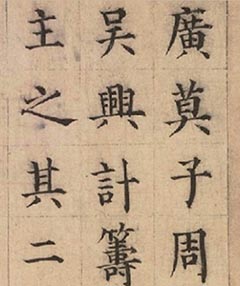 廣莫子周
吳興計籌
主之其二